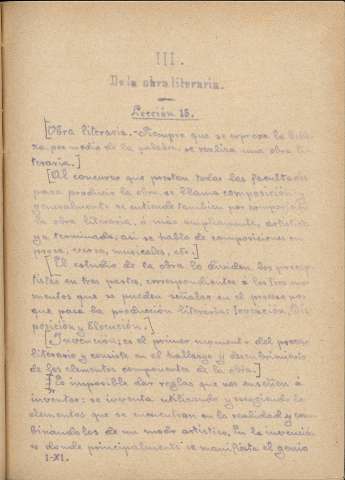 III.
De la obra literaria.
Lección 15.
[Obra literaria.- Siempre que se expresa la belle-
za, por medio de la palabra, se realiza una obra li-
teraria.]
[Al concurso que prestan todas las facultades
para producir la obra, se llama composición, y
generalmente se entiende tambien por composición
la obra literaria, ó mas ampliamente, artística
ya terminada; asi se habla de composiciones en
prosa, verso, musicales, etc.]
[El estudio de la obra lo dividen los precep-
tistas en tres partes, correspondientes á los tres mo-
mentos que se pueden señalar en el proceso por
que pasa la produción literaria: Invención, Dis-
posición y Elocución.]
[Invención; es el primer momento del proceso
literario y consiste en el hallazgo y descubrimiento
de los elementos componentes de la obra.]
[Es imposible dar reglas que nos enseñen á
inventar: se inventa utilizando y escogiendo los
elementos que se encuentran en la realidad y com-
binándolos de un modo artístico. En la invención
es donde principalmente se manifiesta el genio
I-XI.